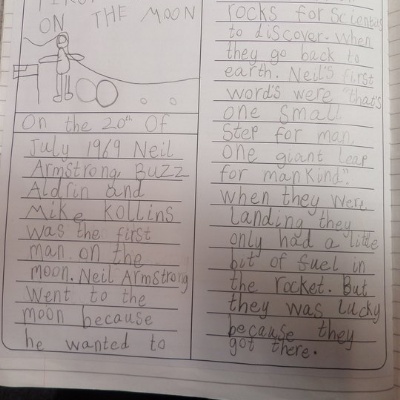 ON THE MOON
On the 20th Of
July 1969 Neil
Armstrong Buzz
Aldrin and
Mike Kollins
was the first
man on the
moon. Neil Armstrong
went to the
moon because
he wanted to
rocks for Scientists
to discover. When
they go back to
earth. Neil's first
word's were "that's
one Small
Step for man,
One giant leap
for mankind".
When they were
landing they
only had a little
bit of fuel in
the rocket. But
they was lucky
because they
got there.